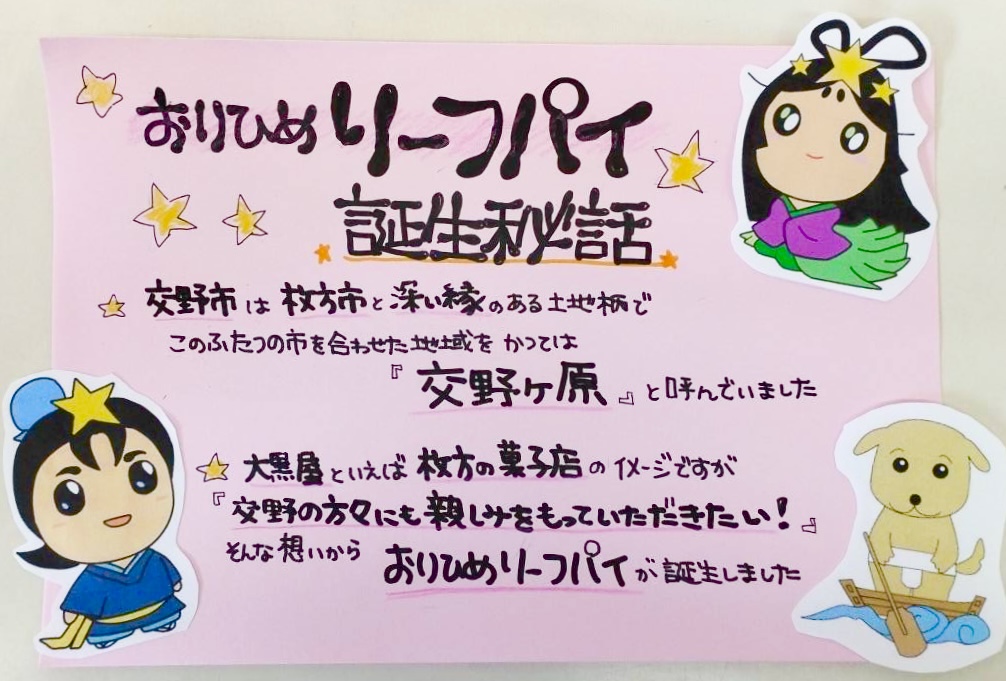 おりひめリーフパイ
誕生秘話
交野市は枚方市と深い縁のある土地柄で
このふたつの市を合わせた地域をかつては
『交野ヶ原』と呼んでいました
大黒屋といえば枚方の菓子店のイメージですが
『交野の方々にも親しみをもっていただきたい!』
そんな想いからおりひめリーフパイが誕生しました